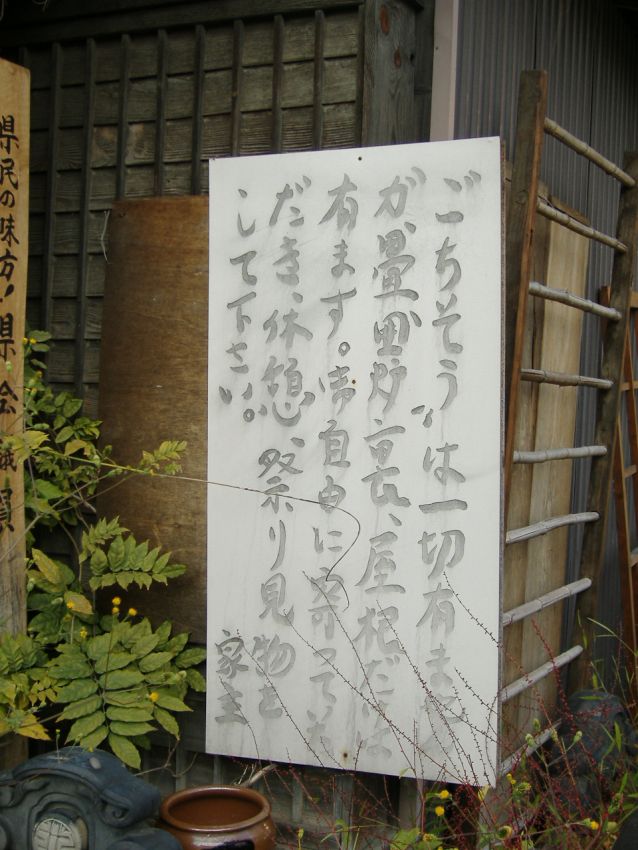 ごちそうは一切有ません
が、畳、囲炉裏、屋根だけは
有ます。御自由に寄っていた
だき、休憩、祭り見物を
して下さい。
家主
県民の味方！県会議員